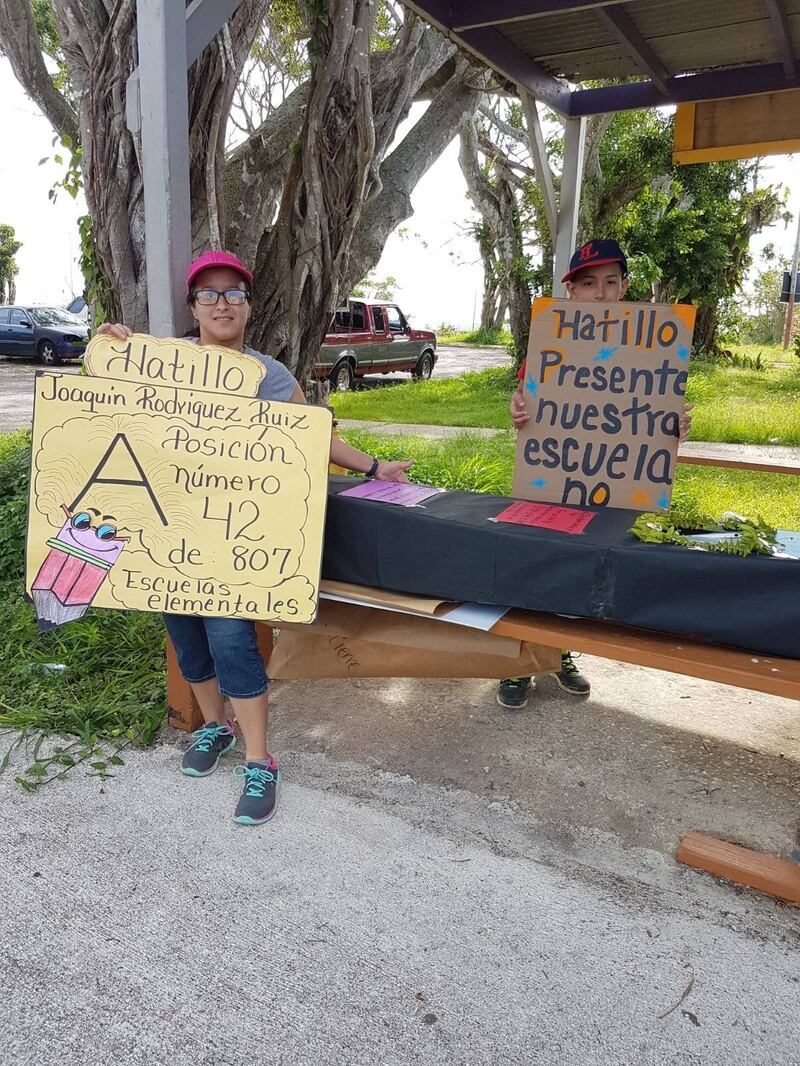 Hatillo
Joaquín Rodríguez Ruiz
A
Posición
número
42
de: 807
Escuelas
elementales.
Hatillo
Presente
nuestra
escuela
no